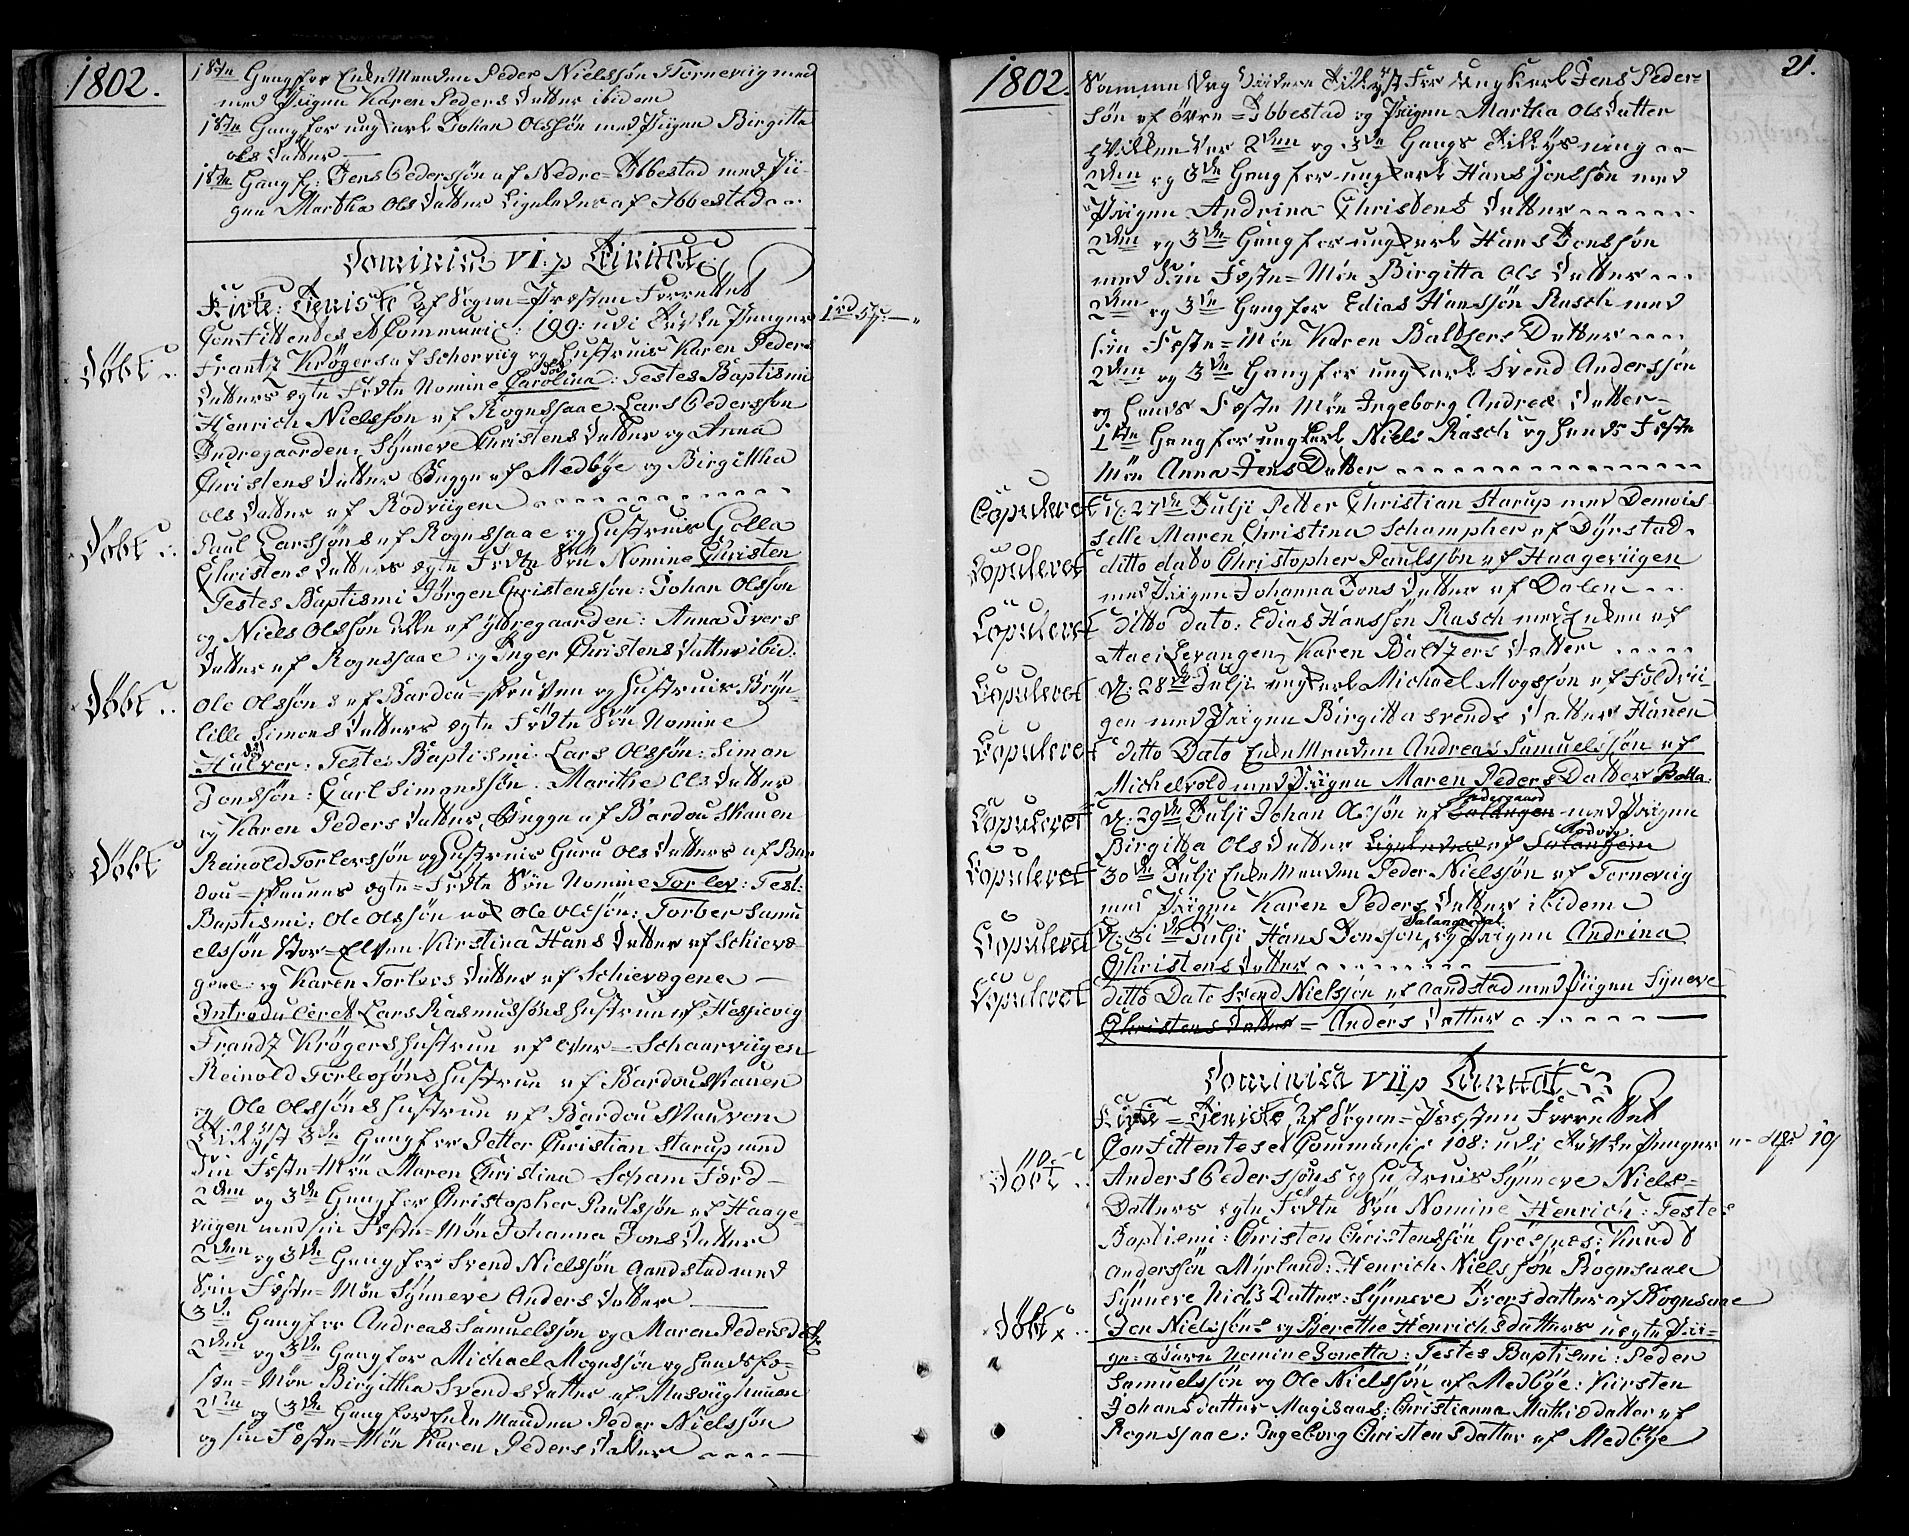 1802.
1ste Gang for Enke Manden Peder Nielssøn Torneviig med
med Piigen Karen Peders Datter ibidem
1ste Gang for ungkarl Johan Olssøn med Piigen Birgitta
Ols Datter
1ste Gang f: Jens Pederssøn af Nedre-Ibbestad med Pii-
gen Martha Ols Datter Ligeledes af Ibbestad
Dominica VI. p Trinitat:
Kirke-Tieniste af Sogne-Præsten Forrettet
Confittendes et Communic: 199: udi Tavle Penger 1rd 5
Døbt
Frantz Krøgers af Schorviig og Hustrues Karen Peders
Datters ægte Fødte Nomine Carolina: Testes Baptismi
død
Henrich Nielssøn af Rognssaae Lars Pederssøn
Indregaarden: Synneve Christens Datter og Anna
Christens Datter Begge af Medbye og Birgittha
Ols Datter af Rodviigen
Døbt
Paul Larssøns af Rognssaae og Hustrues Golla
Christens Datters ægte Fødte Søn Nomine Christen
Testes Baptismi Jørgen Christenssøn: Johan Olssøn
og Niels Olssøn alle af Ydregaarden: Anna Ivers
Datter af Rognssaae og Inger Christens Datter ibid:
Døbt
Ole Olssøns af Bardou-skauen og Hustrues Brün-
lille Simons Datters ægte Fødte Søn Nomine
død
Halver: Testes Baptismi Lars Olssøn: Simon
Jonssøn: Carl Simonssøn: Marithe Ols Datter
og Karen Peders Datter, Begge af Bardou Skauen
Døbt
Reinold Torlerssøn og Hustrues Guru Ols Datters af Bar
dou-skauens ægte-Fødte Søn Nomine Torlev: Test:
Baptismi: Ole Olssøn og Ole Olssøn: Torber Samu
elssøn Stor-Elven Kirstina Hans Datter af Schievæ-
gene: og Karen Torlers Datter af Schievægene
Introduceret Lars Rasmussøns Hustrue af Hessievig
Frandz Krøgers Hustrue af over-Schaarviigen
Reinold Torlessøns Hustrue af Bardou Skauen
og Ole Olssøns Hustrue af Bardou Skauven
Tillyst 3de Gang for Petter Christian Starup med
sin Feste-Møe Maren Christina Scham Færd
2den og 3de Gang for Christopher Paulssøn af Haage-
viigen med sin Feste-Møe Johanna Jons Datter
2den og 3de Gang for Svend Nielssøn Aandstad med
Sin Feste-Møe Synneve Anders Datter
3de Gang for Andreas Samuelssøn og Maren Peders Datter
2den og 3de Gang for Michael Mognssøn og hands fe-
ste-Møe Birgittha Svends Datter af Masviighauen
2den og 3de Gang for Enke Manden Peder Nielssøn
og sin Feste-Møe Karen Peders Datter
1802. 21.
Samme Dag Videre Tillyst For Ungkarl Jens Peder-
søn af Øvre-Ibbestad og Piigen Martha Ols Datter
hvilken var 2den og 3de Gangs Tillysning
2den og 3de Gang for ungkarl Hans Jonssøn med
Piigen Andrina Christens Datter
2den og 3de Gang for ungkarl Hans Jonssøn
med Sin Feste-Møe Birgitta Ols Datter
2den og 3de Gang for Edias Hanssøn Rasch med
sin Feste-Møe Karen Baltzers Datter
2den og 3de Gang for ungkarl Svend Anderssøn
og Hands Feste Møe Ingeborg Andreæ Datter
1ste Gang for ungkarl Niels Rasch og Hands Feste
Møe Anna Jens Datter
Copuleret d: 27de Julji Petter Christian Starup med Demois-
selle Maren Christina Schampher af Dÿrstad
Copuleret ditto dato Christopher Paulssøn af Haageviigen
med Piigen Johanna Jons Datter af Dalen
Copuleret ditto dato: Edias Hanssøn Rasch med Enken af
Aaei Levangen Karen Baltzers Datter
Copuleret d: 28de Julji ungkarl Michael Mogssøn af Foldvii-
gen med Piigen Birgitta Svends Datter Hauen
Copuleret ditto Dato Enke Manden Andreas Samuelssøn af
Michelvold med Piigen Maren Peders Datter Bolla:
Copuleret d: 29de Julji Johan Olssøn af Salangen med Piigen
Indergaard
Birgitta Ols Datter Ligeledes af Salangen
Rodvig
Copuleret 30de Julji Enke Manden Peder Nielssøn af Torneviig
med Piigen Karen Peders Datter ibidem
Copuleret d: 31de Julji Hans Jonssøn og Piigen Andrina
Salangsdal
Christens Datter
Copuleret ditto Dato Svend Nielssøn af Aandstad med Piigen Synneve
Christens Datter = Anders Datter
Dominica VII p Trinitat:
Kirke-Tieniste af Sogne-Præsten Forrettet
Confittentes et Communic: 108: udi Tavle Penger
Døbt
Anders Pederssøns og Hustrues Synneve Niels-
Datters ægte Fødte Søn Nomine Henrich: Testes
Baptismi: Christen Christenssøn Grøsnæs: Knud
Anderssøn Myrland: Henrich Nielssøn Rognsaae
Synneve Niels Datter: Synneve Iversdatter af Rognsaae
Døbt x
Jon Nielssøns og Berethe Henrichsdatters uegte Pii-
ge-Barn Nomine Jonetta: Testes Baptismi: Peder
Samuelssøn og Ole Nielssøn af Medbÿe: Kirsten
Johansdatter Magisaas: Christianna Mathisdatter af
Rognssaae: Ingeborg Christensdatter af Medbÿe